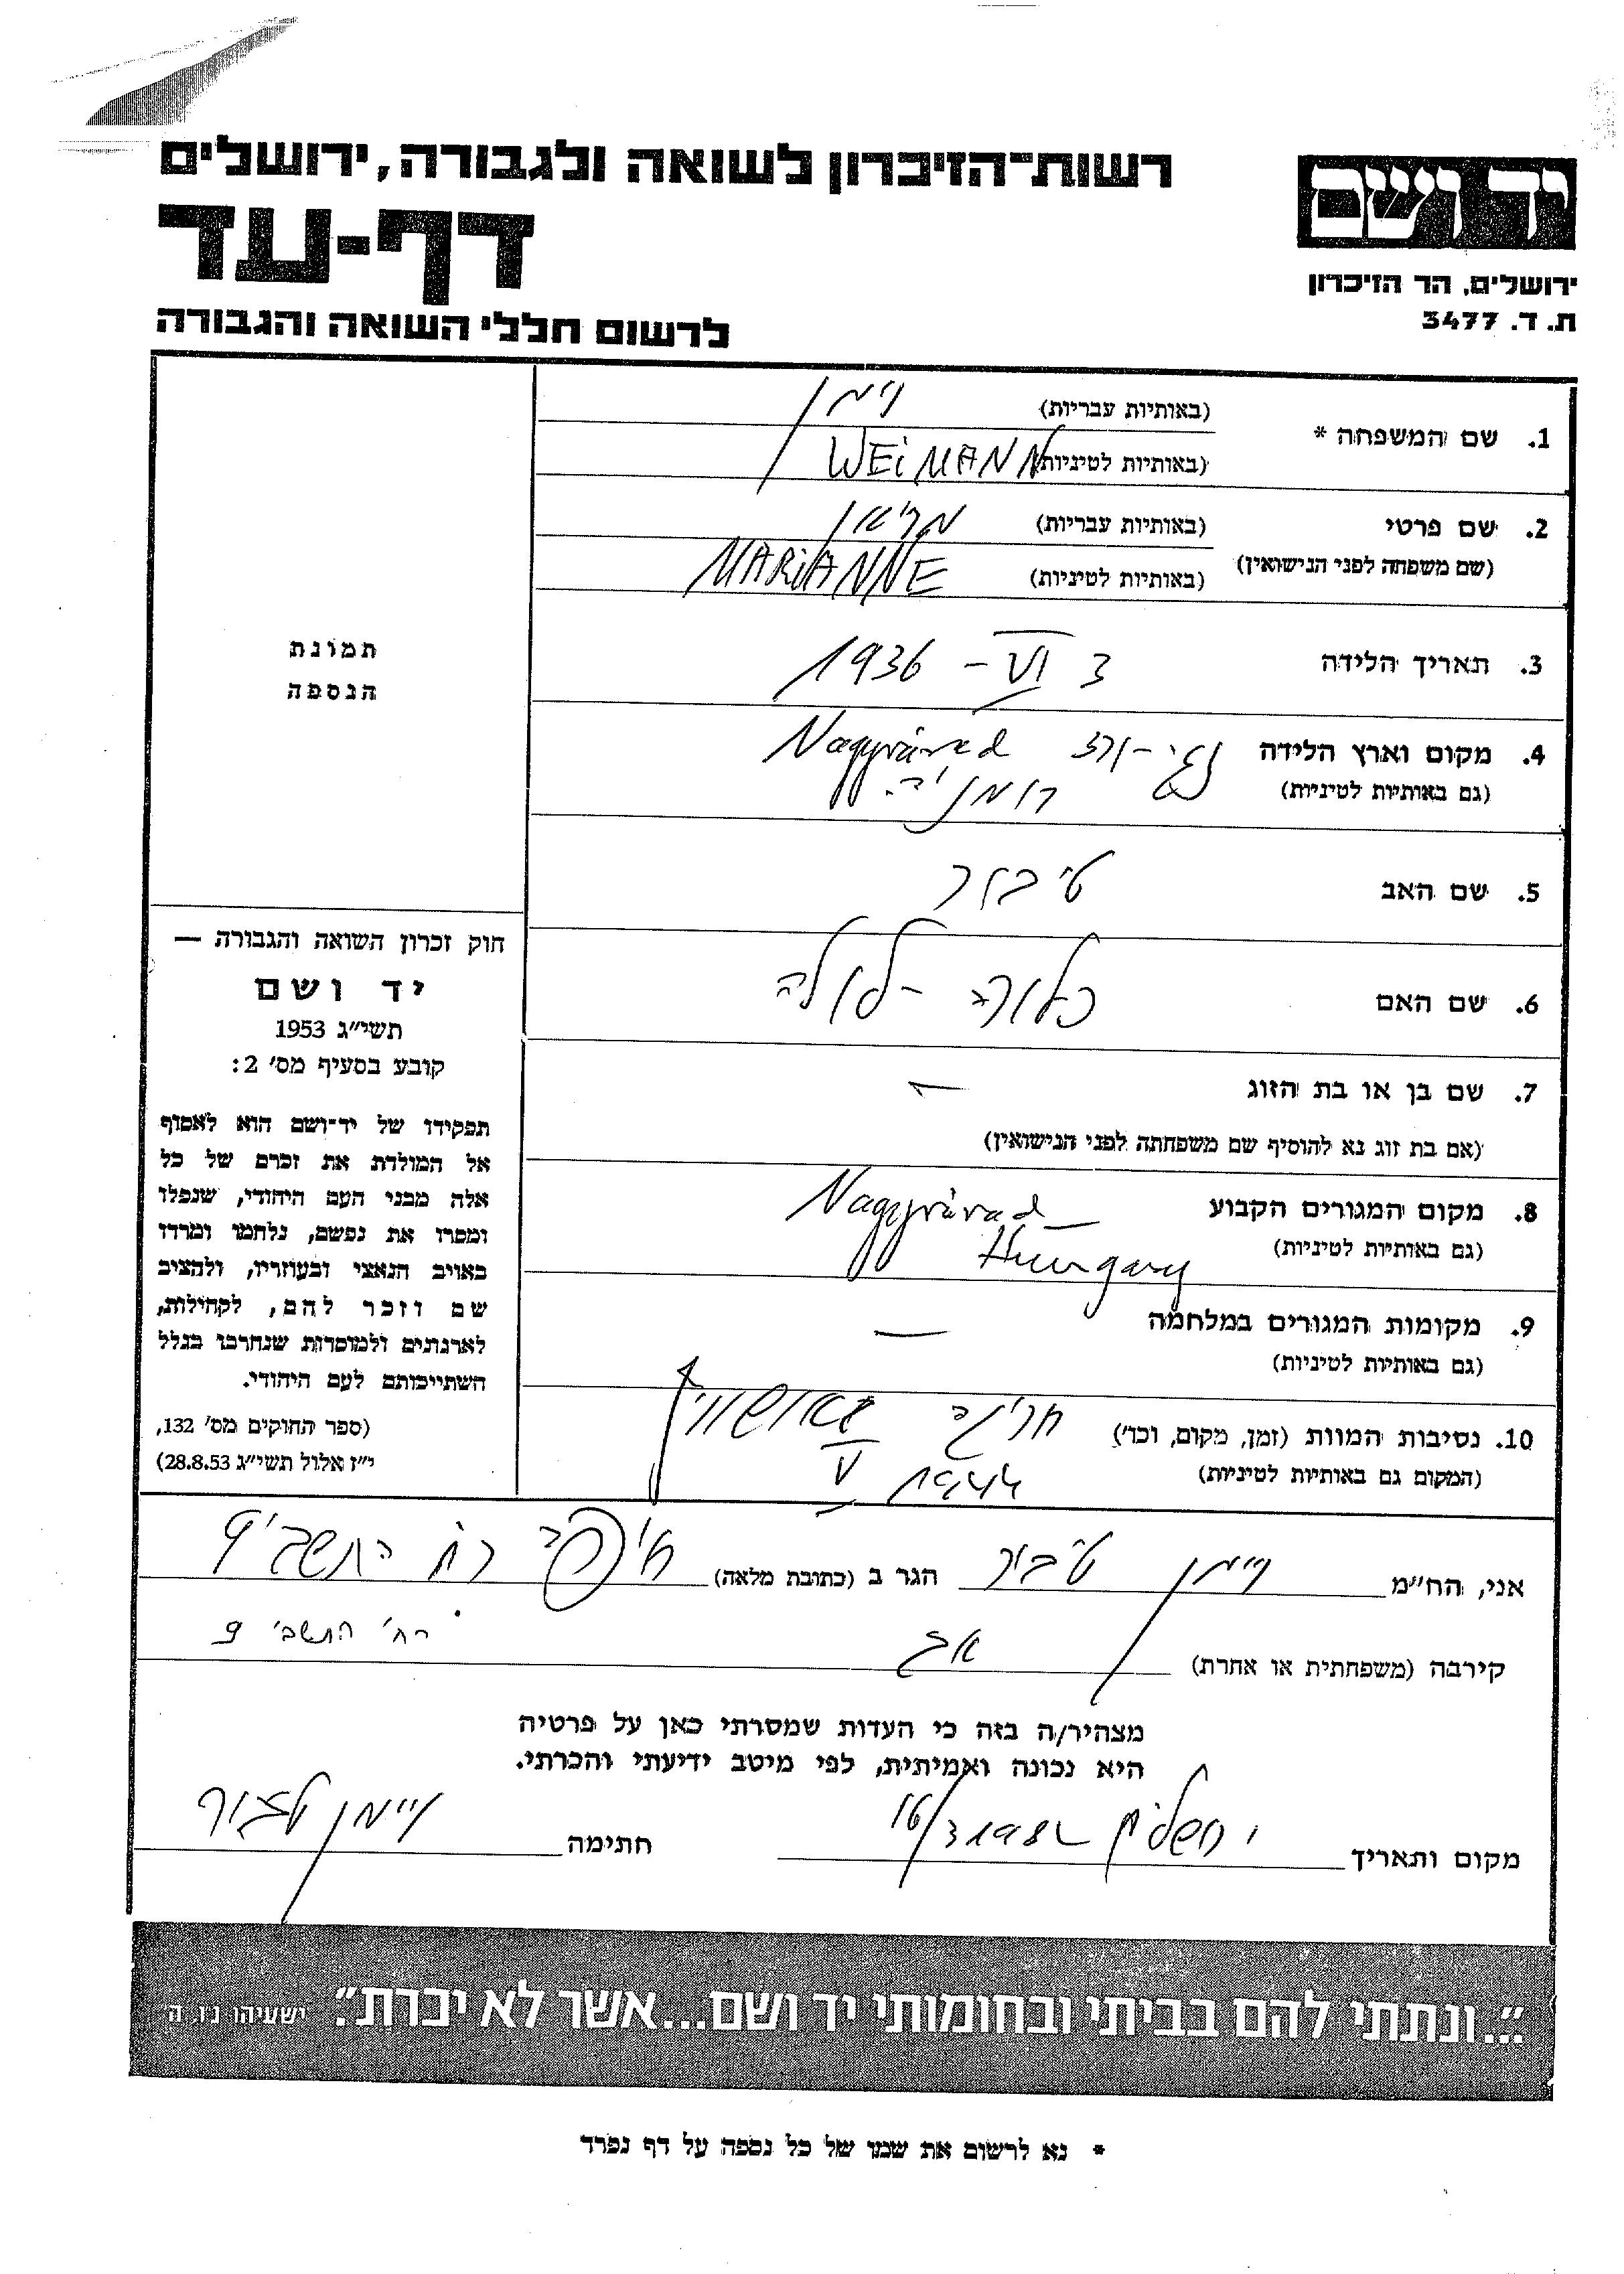 רשות־הזיכרון לשואה ולגבורה, ירושלים
דף-עד
לרשום חללי השואה והגבורה
יד ושם
ירושלים, הר הזיכרון
ת. ד. 3477
1. שם המשפחה *
(באותיות עבריות) וימן
(באותיות לטיניות) WEIMANN
2. שם פרטי
(שם משפחה לפני הנישואין)
(באותיות עבריות) מריאן
(באותיות לטיניות) MARIANNE
3. תאריך הלידה 3 VI – 1936
4. מקום וארץ הלידה נגי-ורד Nagyvárad
(גם באותיות לטיניות) רומניה.
5. שם האב טיבור
6. שם האם קלורה - לולה
7. שם בן או בת הזוג —
(אם בת זוג נא להוסיף שם משפחתה לפני הנישואין)
8. מקום המגורים הקבוע Nagyvárad
(גם באותיות לטיניות) Hungary
9. מקומות המגורים במלחמה —
(גם באותיות לטיניות)
10. נסיבות המוות (זמן, מקום, וכד׳)
(המקום גם באותיות לטיניות) V 1944
תמונת
הנספה
חוק זכרון השואה והגבורה —
יד ושם
תשי״ג 1953
קובע בסעיף מס׳ 2:
תפקידו של יד־ושם הוא לאסוף
אל המולדת את זכרם של כל
אלה מבני העם היהודי, שנפלו
ומסרו את נפשם, נלחמו ומרדו
באויב הנאצי ובעוזריו, ולהציב
שם וזכר להם, לקהילות,
לארגונים ולמוסדות שנחרבו בגלל
השתייכותם לעם היהודי.
(ספר החוקים מס׳ 132,
י״ז אלול תשי״ג 28.8.53)
אני, הח״מ וימן טיבור הגר ב (כתובת מלאה) חיפה רח׳ התשבי 9
רח׳ התשבי 9
קירבה (משפחתית או אחרת) אב
מצהיר/ה בזה כי העדות שמסרתי כאן על פרטיה
היא נכונה ואמיתית, לפי מיטב ידיעתי והכרתי.
מקום ותאריך ירושלים 16/3 198 חתימה ויימן טיבור
״...ונתתי להם בביתי ובחומותי יד ושם...אשר לא יכרת״. ישעיהו נו, ה
* נא לרשום את שמו של כל נספה על דף נפרד